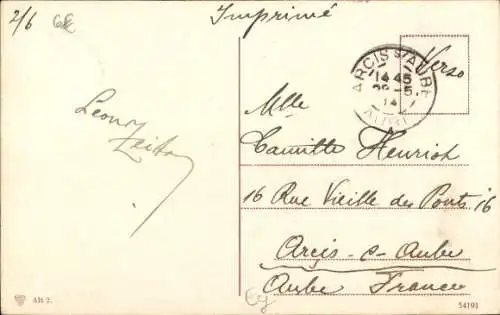 2/6
Imprimé
Verso
ARCIS S/AUBE
14 45
5.
14
AUBE
Mlle
Camille Henriot
16 Rue Vieille des Ponts 16
Arcis-s-Aube
Aube France
Léon
Alt 2.
54191